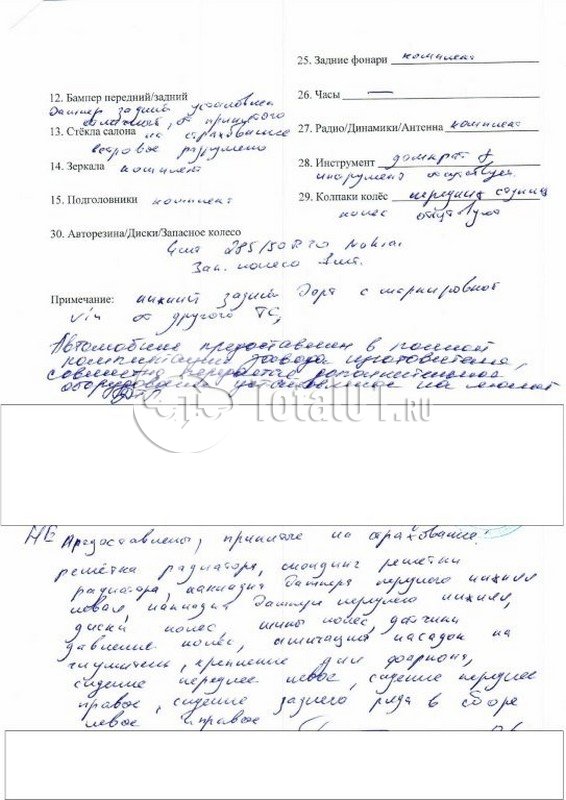 25. Задние фонари комплект
12. Бампер передний/задний
26. Часы —
Бампер задний установлен
от принятого
27. Радио/Динамики/Антенна комплект
13. Стёкла салона на страхование
ветровое разрушено
28. Инструмент домкрат
14. Зеркала комплект
инструмент отсутствует.
15. Подголовники комплект
29. Колпаки колёс передних ступиц
колес отсутствуют
30. Авторезина/Диски/Запасное колесо
4 шт 285/50 R20 Nokian
Зап. колесо 1 шт.
Примечание: нижний задний борт с маркировкой
Vin от другого ТС,
Автомобиль предоставлен в полной
комплектации завода изготовителя,
совместно передается дополнительное
оборудование установленное на момент
Total01.ru
НЕ предоставлены, принятые на страхование:
решётка радиатора, молдинг решетки
радиатора, накладка бампера переднего нижняя
левая, накладка бампера переднего нижняя,
диски колес, шины колес, датчики
давления колёс, имитация насадок на
глушитель, крепление для фаркопа,
сидение переднее левое, сидение переднее
правое, сидение заднего ряда в сборе
левое и правое